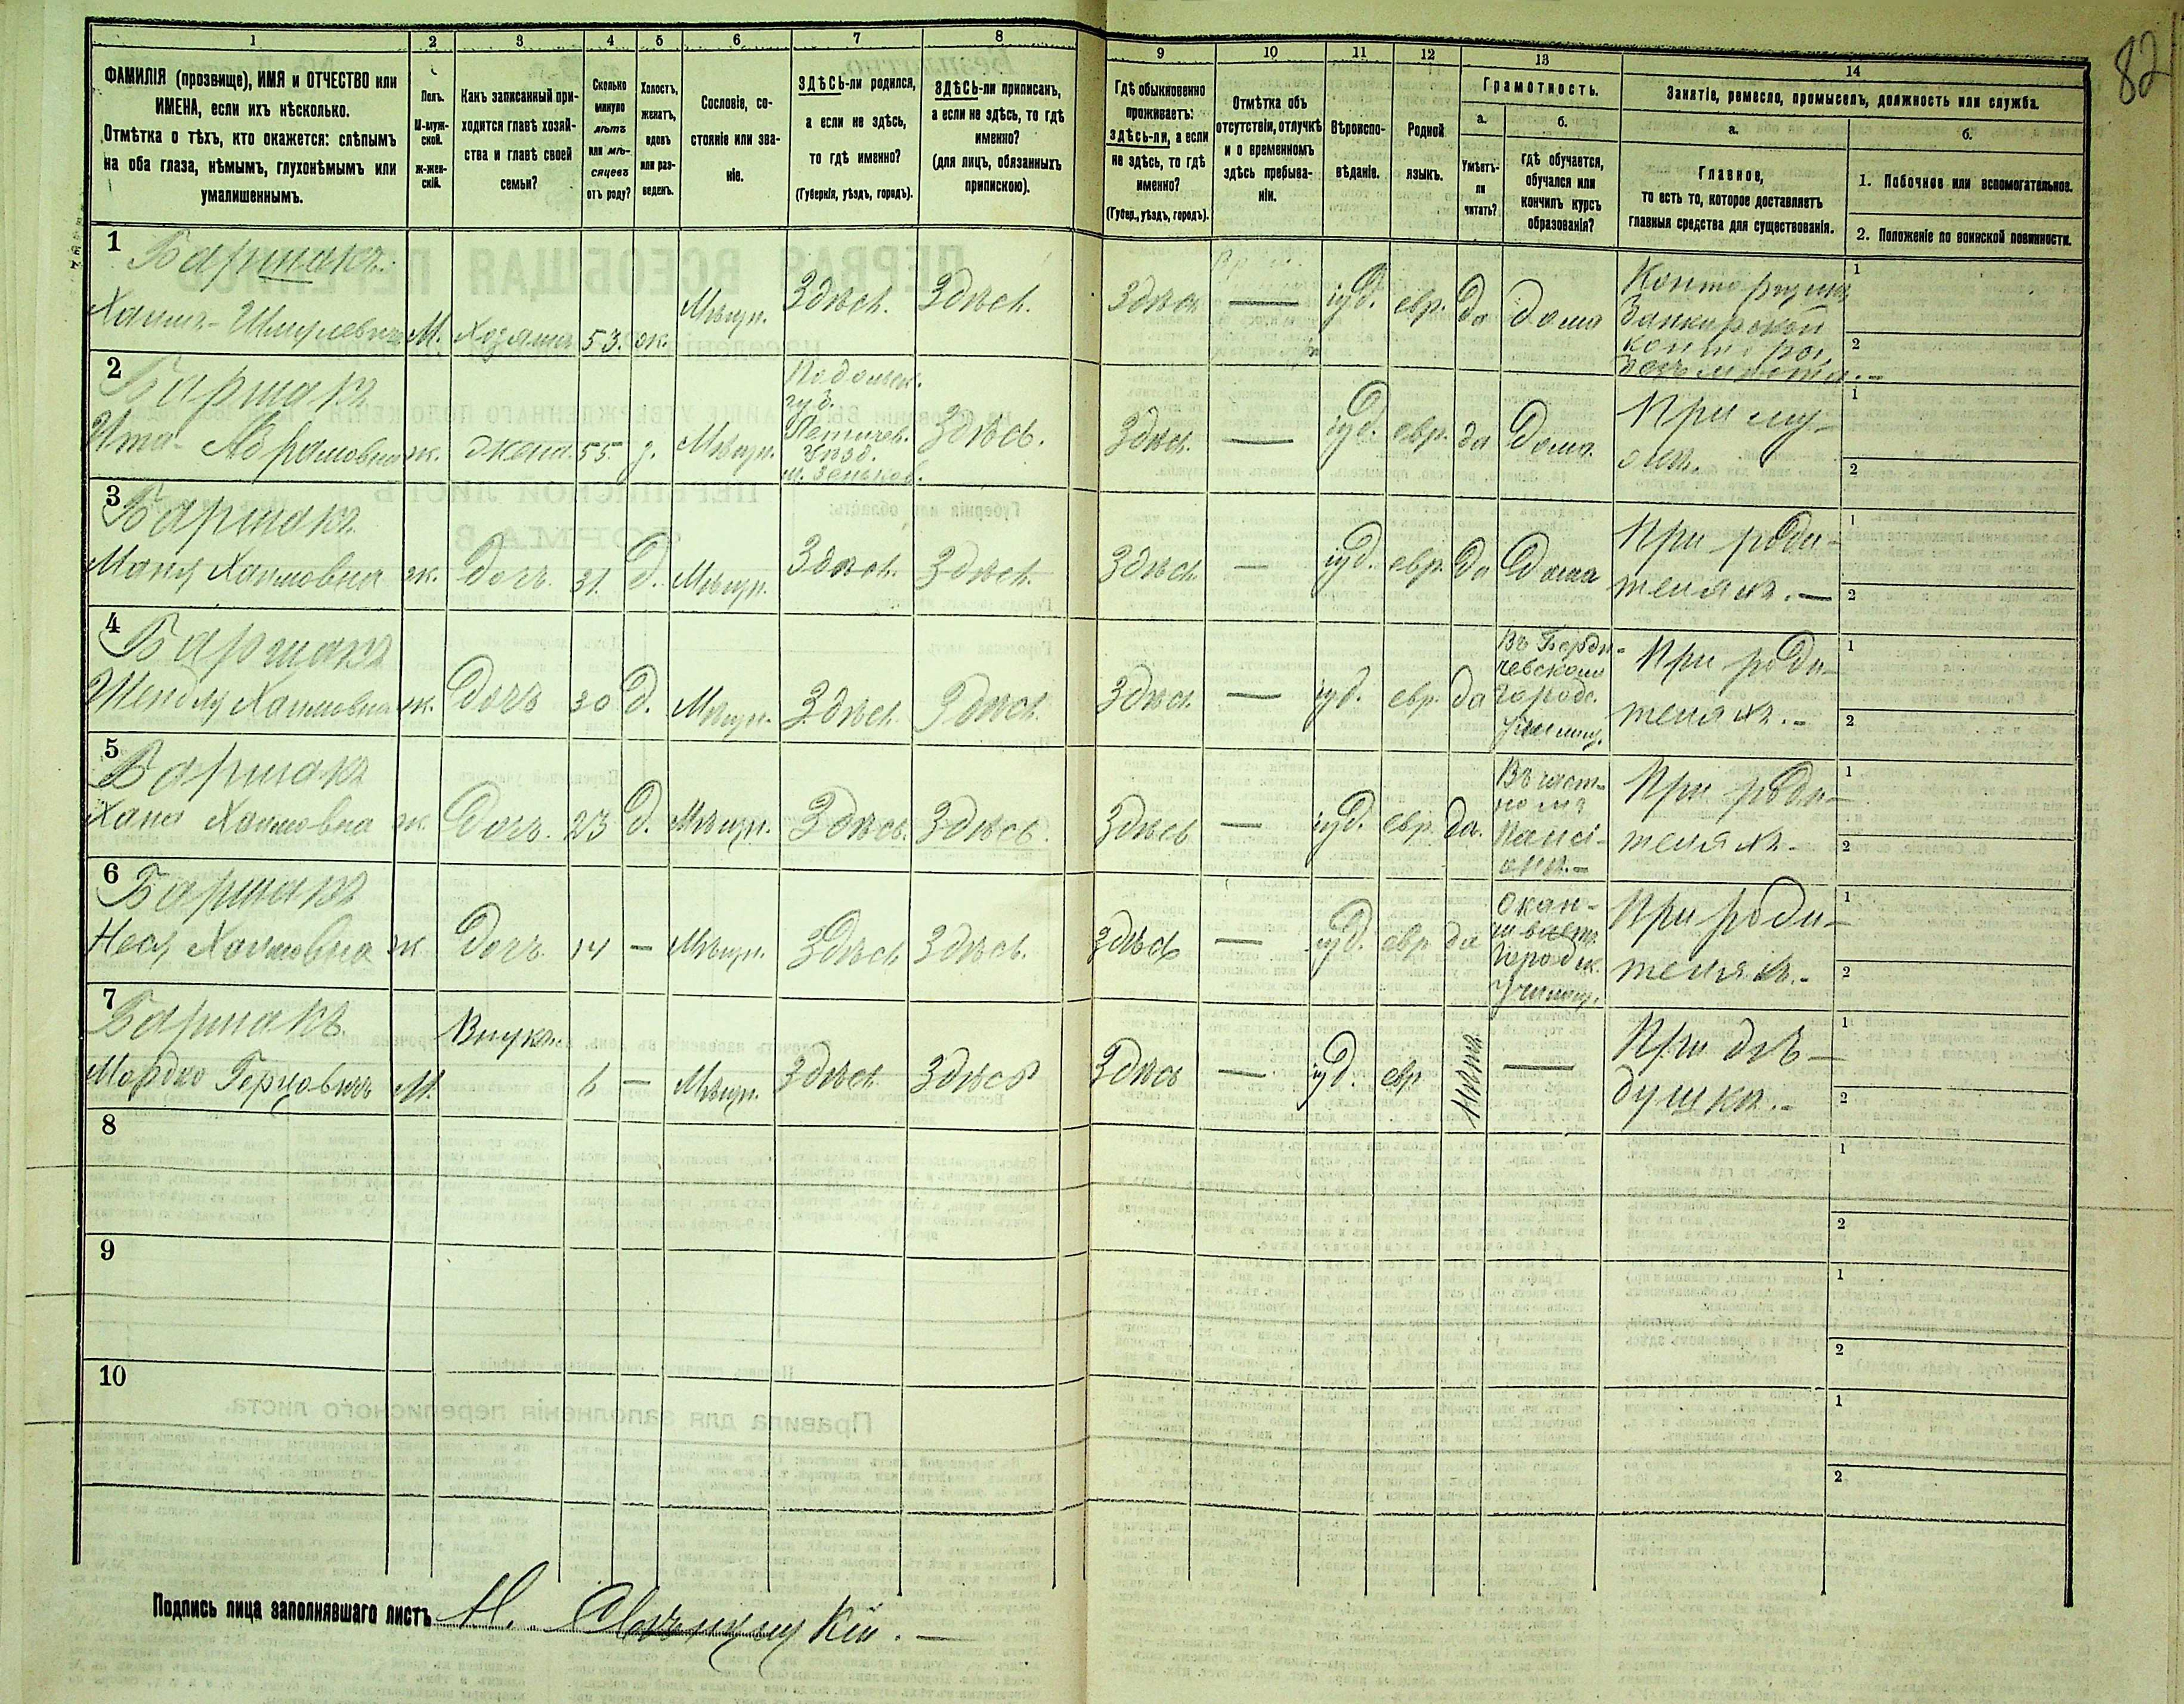 82
1 2 3 4 5 6 7 8 9 10 11 12 13 14
ФАМИЛІЯ (прозвище), ИМЯ и ОТЧЕСТВО или
ИМЕНА, если ихъ нѣсколько.
Отмѣтка о тѣхъ, кто окажется: слѣпымъ
на оба глаза, нѣмымъ, глухонѣмымъ или
умалишеннымъ.
Полъ.
М-муж-
ской.
ж-жен-
скій.
Какъ записанный при-
ходится главѣ хозяй-
ства и главѣ своей
семьи?
Сколько
минуло
лѣтъ
или мѣ-
сяцевъ
отъ роду?
Холостъ,
женатъ,
вдовъ
или раз-
веденъ.
Сословіе, со-
стояніе или зва-
ніе.
ЗДѢСЬ-ли родился,
а если не здѣсь,
то гдѣ именно?
(Губернія, уѣздъ, городъ).
ЗДѢСЬ-ли приписанъ,
а если не здѣсь, то гдѣ
именно?
(для лицъ, обязанныхъ
припискою).
Гдѣ обыкновенно
проживаетъ:
здѣсь-ли, а если
не здѣсь, то гдѣ
именно?
(Губер., уѣздъ, городъ).
Отмѣтка объ
отсутствіи, отлучкѣ
и о временномъ
здѣсь пребыва-
ніи.
Вѣроиспо-
вѣданіе.
Родной
языкъ.
Грамотность.
а.
Умѣетъ-
ли
читать?
б.
Гдѣ обучается,
обучался или
кончилъ курсъ
образованія?
Занятіе, ремесло, промыселъ, должность или служба.
а.
Главное,
то есть то, которое доставляетъ
главныя средства для существованія.
б.
1. Побочное или вспомогательное.
2. Положеніе по воинской повинности.
1
Баршакъ
Хаимъ-Шмулевичъ М. Хозяинъ 53. ж. Мѣщ. Здѣсь. Здѣсь. Здѣсь — іуд. евр. да дома
Банкирской
конторы,
1
2
2
Баршакъ
Ита-Абрамовна ж. жена. 55. з. Мѣщ.
Подольск.
губ.
Летичев.
уѣзд.
м. Зеньков.
Здѣсь. Здѣсь. — іуд. евр. да дома.
При му-
жѣ.
1
2
3
Баршакъ
Маня Хаимовна ж. дочь. 31. д. Мѣщ. Здѣсь. Здѣсь. Здѣсь. — іуд. евр. да дома
При роди-
теляхъ. —
1
2
4
Баршакъ
Шендля Хаимовна ж. дочь 30 д. Мѣщ. Здѣсь. Здѣсь. Здѣсь. — іуд. евр. да
Въ Берди-
чевскомъ
городс.
училищ.
При роди-
теляхъ. —
1
2
5
Баршакъ
Хана Хаимовна ж. дочь. 23 д. Мѣщ. Здѣсь. Здѣсь. Здѣсь — іуд. евр. да.
Въ част-
номъ
пансі-
онѣ. —
При роди-
теляхъ. —
1
2
6
Баршакъ
Неся Хаимовна ж дочь. 14 — Мѣщ. Здѣсь Здѣсь. Здѣсь — іуд. евр. да
Окан-
чиваетъ
городск.
училищ.
При роди-
теляхъ. —
1
2
7
Баршакъ
Мордко Герцовичъ М. Внукъ 6 — Мѣщ. Здѣсь. Здѣсь Здѣсь — іуд. евр. —
При дѣ-
душкѣ. —
1
2
8
1
2
9
1
2
10
1
2
Подпись лица заполнявшаго листъ